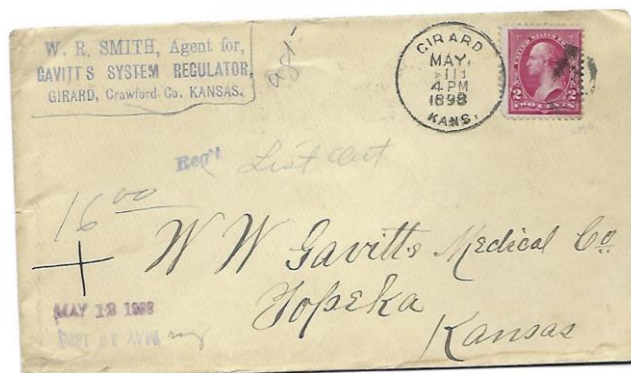 W. R. SMITH, Agent for,
GAVITT'S SYSTEM REGULATOR,
GIRARD, Crawford Co. KANSAS.
agt
GIRARD
MAY
11
4 PM
1898
KANS.
2 TWO CENTS 2
Rec'd List Out
16 00
W W Gavitts Medical Co.
Topeka
Kansas
MAY 12 1898
MAY 12